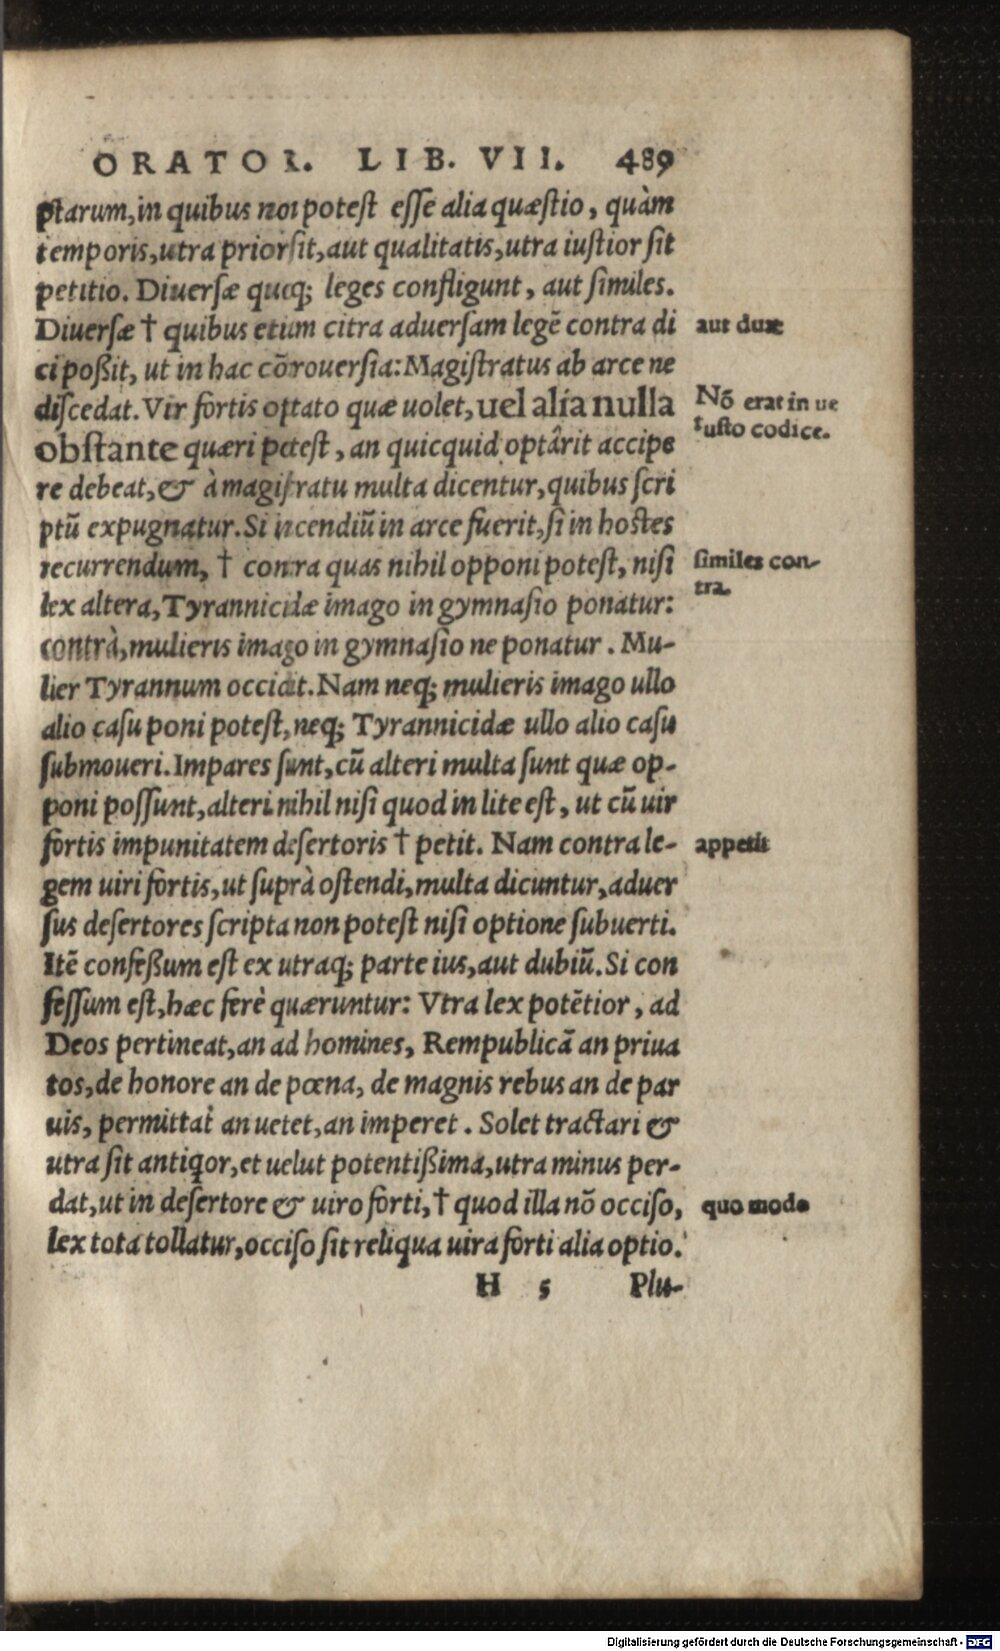 ORATOR. LIB. VII. 489
ptarum, in quibus non potest esse alia quæstio, quàm
temporis, utra prior sit, aut qualitatis, utra iustior sit
petitio. Diuersæ quoq; leges confligunt, aut similes.
Diuersæ † quibus etiam citra aduersam legẽ contra di
aut duæ
ci poßit, ut in hac cõtrouersia: Magistratus ab arce ne
discedat. Vir fortis optato quæ uolet, uel alia nulla
Nõ erat in ue
tusto codice.
obstante quæri potest, an quicquid optârit accipe
re debeat, & à magistratu multa dicentur, quibus scri
ptũ expugnatur. Si incendiũ in arce fuerit, si in hostes
recurrendum, † contra quas nihil opponi potest, nisi
similes con-
tra.
lex altera, Tyrannicidæ imago in gymnasio ponatur:
contrà, mulieris imago in gymnasio ne ponatur. Mu-
lier Tyrannum occidit. Nam neq; mulieris imago ullo
alio casu poni potest, neq; Tyrannicidæ ullo alio casu
submoueri. Impares sunt, cũ alteri multa sunt quæ op-
poni possunt, alteri nihil nisi quod in lite est, ut cũ uir
fortis impunitatem desertoris † petit. Nam contra le-
appetit
gem uiri fortis, ut suprà ostendi, multa dicuntur, aduer
sus desertores scripta non potest nisi optione subuerti.
Itẽ confeßum est ex utraq; parte ius, aut dubiũ. Si con
fessum est, hæc ferè quæruntur: Vtra lex potẽtior, ad
Deos pertineat, an ad homines, Rempublicã an priua
tos, de honore an de pœna, de magnis rebus an de par
uis, permittat an uetet, an imperet. Solet tractari &
utra sit antiqor, et uelut potentißima, utra minus per-
dat, ut in desertore & uiro forti, † quod illa nõ occiso,
quo modo
lex tota tollatur, occiso sit reliqua uira forti alia optio.
H 5 Plu-
Digitalisierung gefördert durch die Deutsche Forschungsgemeinschaft - DFG